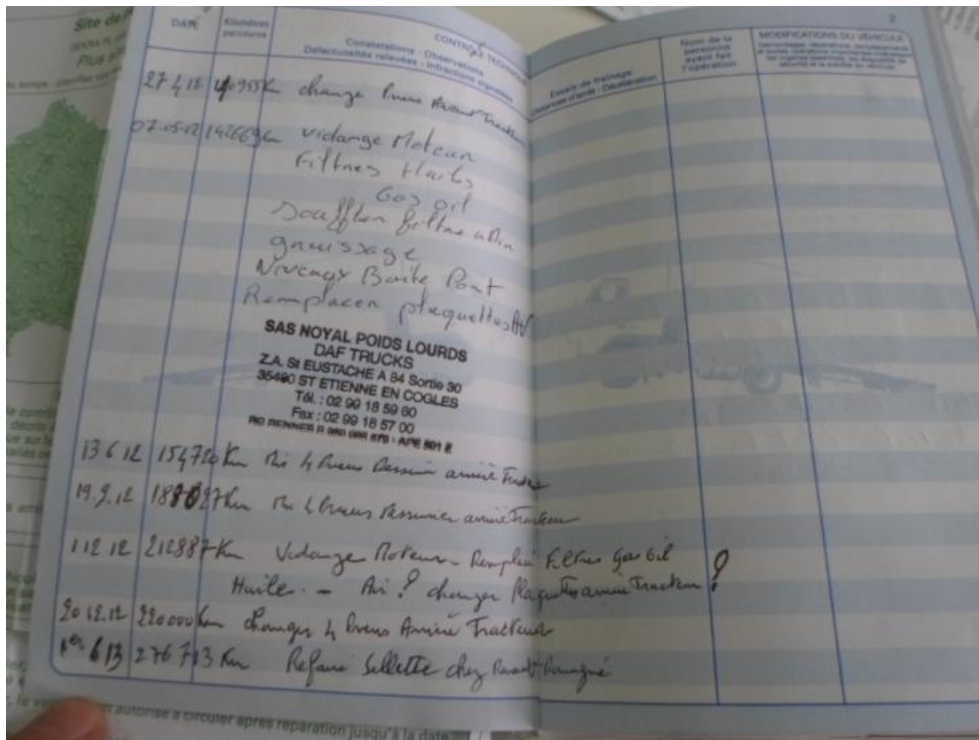 Site de
Plus
2
DATE
Kilomètres
parcourus
CONTRÔLE TECHNIQUE
Constatations - Observations
Défectuosités relevées - Infractions signalées
Essais de freinage
Distances d'arrêt - Décélération
Nom de la
personne
ayant fait
l'opération
MODIFICATIONS DU VÉHICULE
27 4 12 140955 Km change Pneus Avant Tracteur
07.05.12 142669 Km Vidange Moteur
Filtres Huiles
Gas oil
Souffler filtre a Air
graissage
Niveaux Boite Pont
Remplacer plaquettes AV
SAS NOYAL POIDS LOURDS
DAF TRUCKS
Z.A. St EUSTACHE A 84 Sortie 30
35460 ST ETIENNE EN COGLES
Tél. : 02 99 18 59 60
Fax : 02 99 18 57 00
13 6 12 154720 Km Mis 4 Pneus arrière
19.9.12 188027 Km Mis 4 Pneus arrière Tracteur
1 12 12 212887 Km Vidange Moteur Remplacé Filtres Gas Oil
Huile - Air ? changer Plaquettes arrière Tracteur ?
20 12.12 220000 Km changer 4 Pneus Arrière Tracteur
1er 6 13 276713 Km Refaire Sellette chez Renault
autorisé à circuler après réparation jusqu'à la date